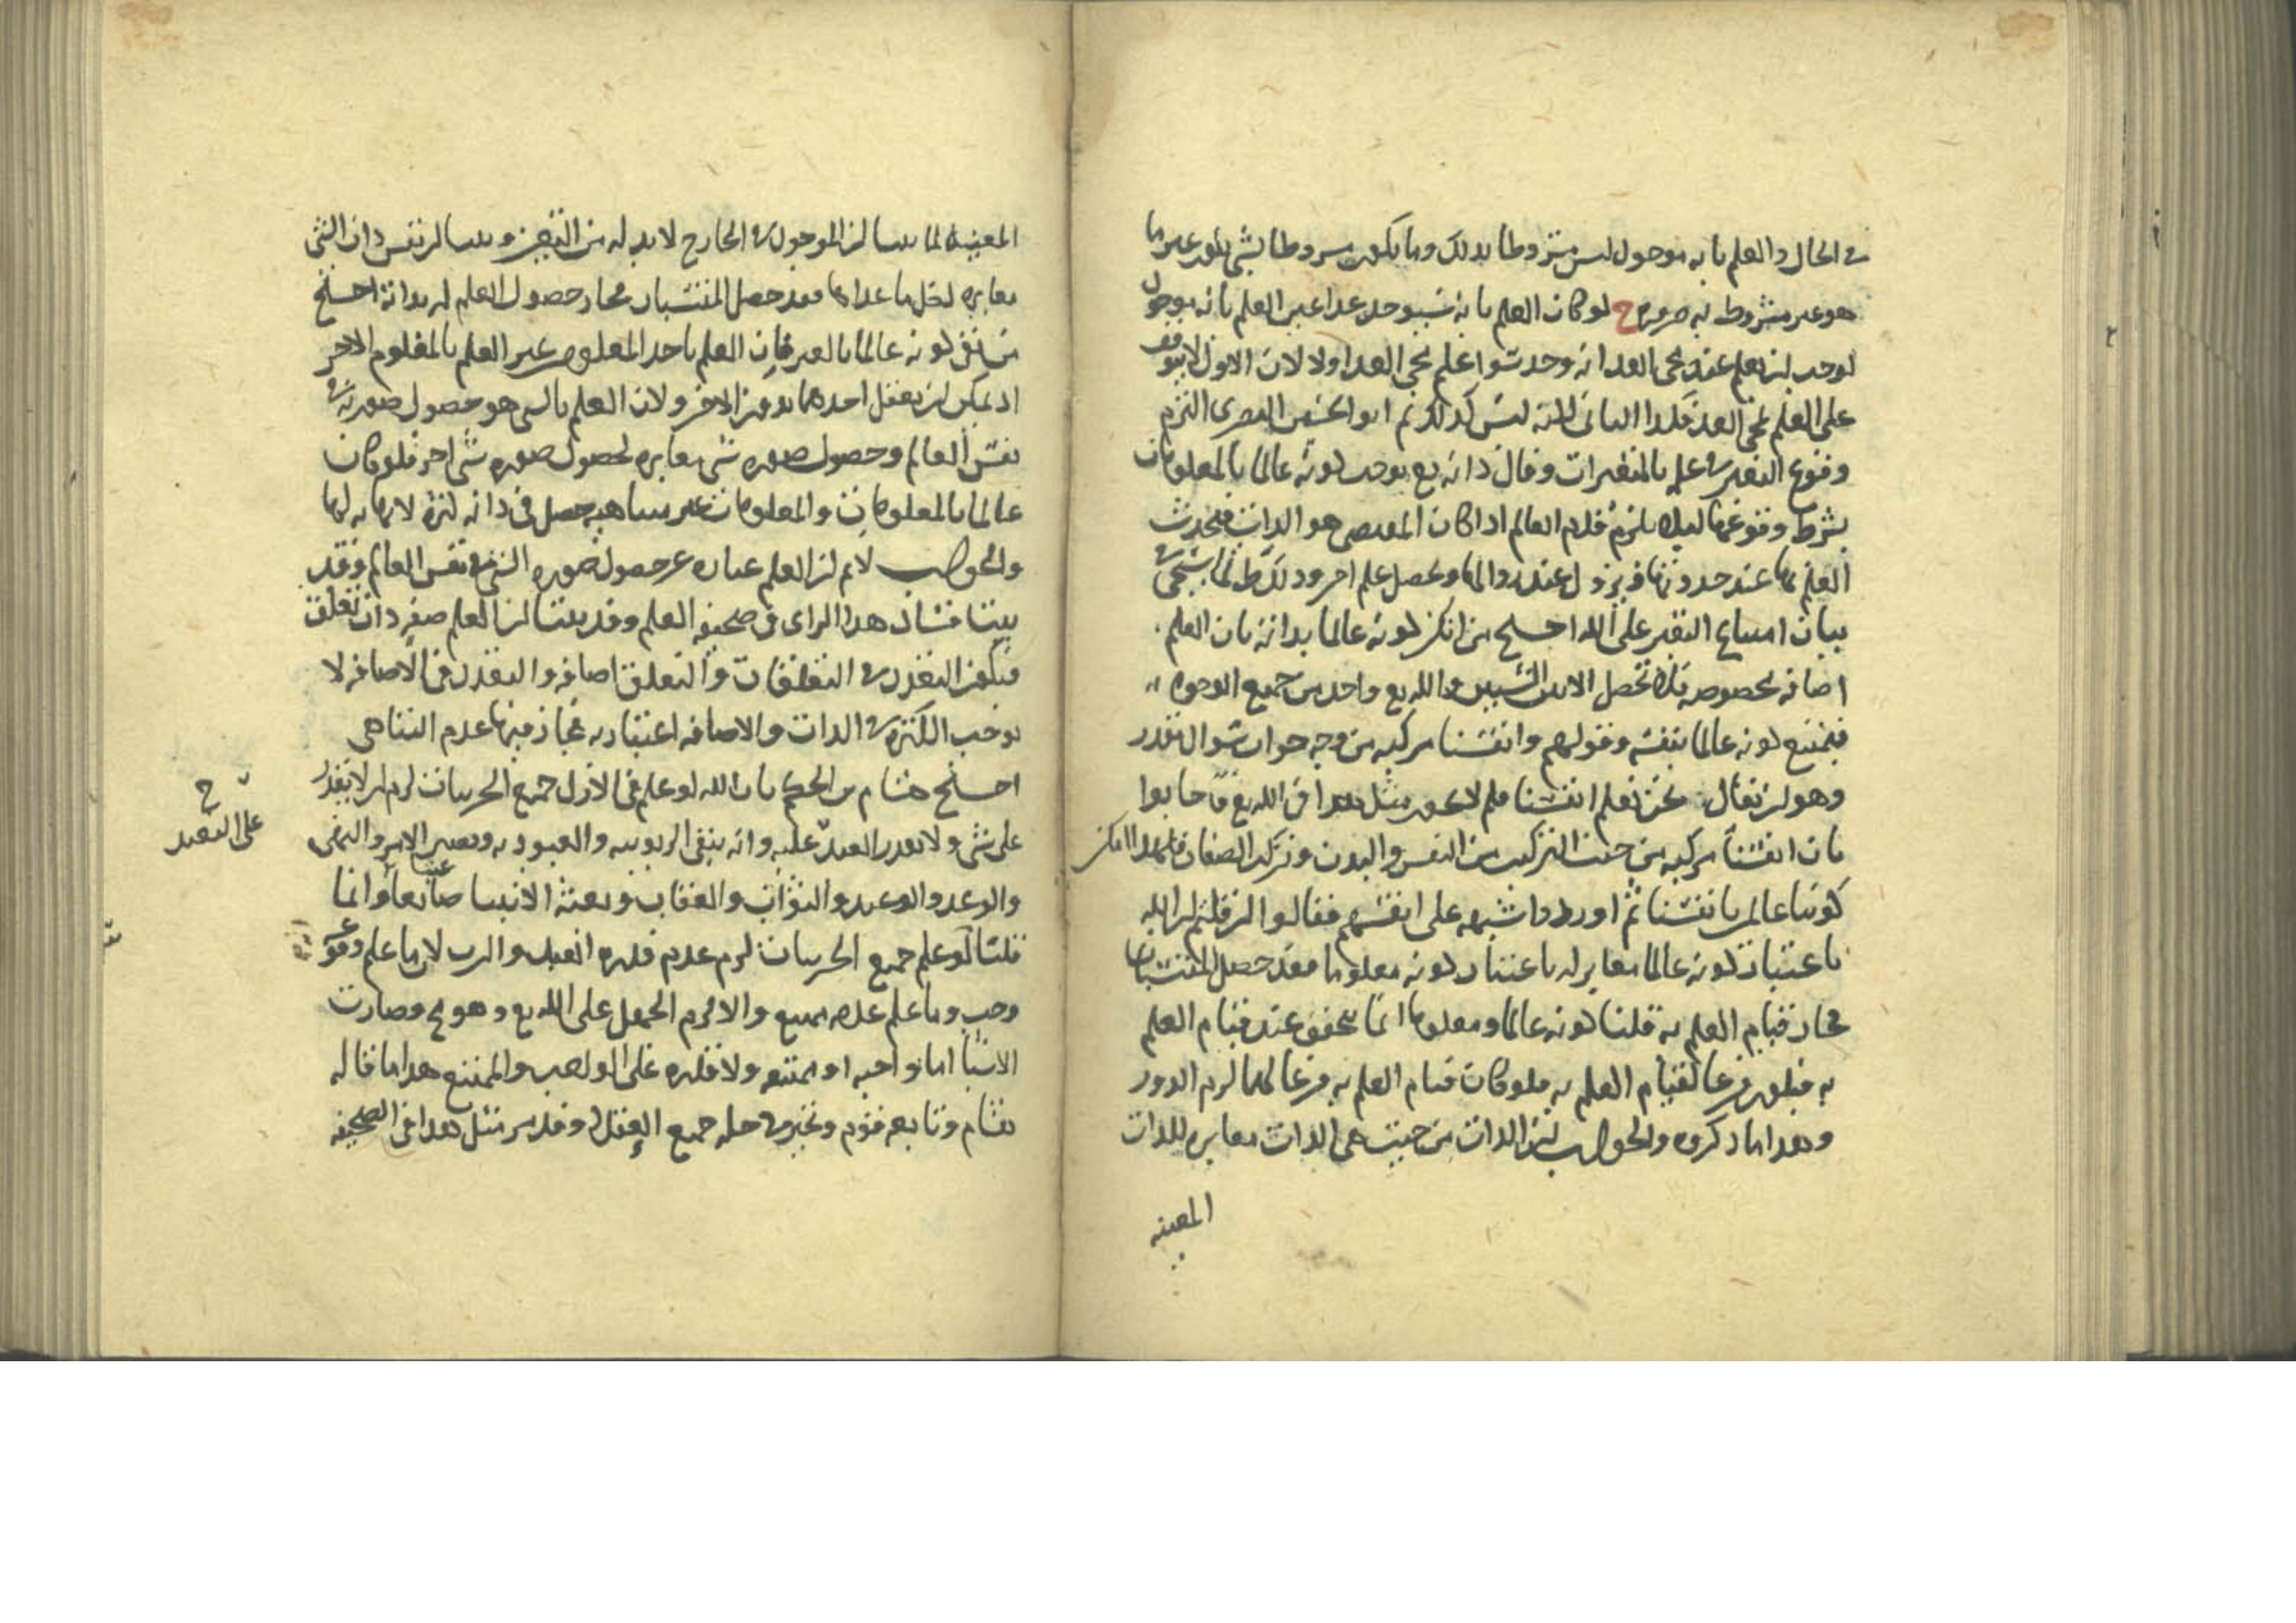 في الحال والعلم بانه موجود ليس مشروطا بذلك وما يكون مشروطا بشي يكون غير ما
هو غير مشروط به ضرورة ح لو كان العلم بانه سيوجد غدا عين العلم بانه يوجد
لوجب ان يعلم عند مجي الغد انه وجد سوا علم مجي الغد اولا لان الاول لا يتوقف
على العلم بمجي الغد فكذا الثاني لكنه ليس كذلك ثم ابو الحسين البصري التزم
وقوع التغير في علمه بالمتغيرات وقال ذاته تع يوجب كونه عالما بالمعلومات
بشرط وقوعها ليلا يلزم قدم العالم اذا كان المقتضي هو الذات فيحدث
العلم بها عند حدوثها ويزول عند زوالها ويحصل علم اخر وذلك ط لما سيجي في
بيان امتناع التغير على الله احتج من انكر كونه عالما بذاته بان العلم
اضافة مخصوصة فلا تحصل الا بين الشيئين والله تع واحد من جميع الوجوه
فيمتنع كونه عالما بنفسه وقولهم وانفسنا مركبة من وجه جواب سوال مقدر
وهو ان يقال نحن نعلم انفسنا فلم لا يجوز مثل هذا في الله تع فاجابوا
بان انفسنا مركبة من حيث التركيب من النفس والبدن وتركب الصفات فلهذا امكن
كوننا عالمين بانفسنا ثم اوردوا شبهة على انفسهم فقالوا ان قلتم ان الله
باعتبار كونه عالما مغاير له باعتبار كونه معلوما فقد حصل المنتسبان
فجاز قيام العلم به قلنا كونه عالما ومعلوما انما يتحقق عند قيام العلم
به فيكون فرعا لقيام العلم به فلو كان قيام العلم به فرعا لهما لزم الدور
وهذا ما ذكروه والجواب ان الذات من حيث هي الذات مغايرة للذات
المعينه
المعينه لما بينا ان الموجود في الخارج لا بد له من التعين وبينا ان نفس ذات الشي
مغايرة لكل ما عداها فقد حصل المنتسبان فجاز حصول العلم له بذاته احتج
من نفى كونه عالما بالغير فان العلم باحد المعلومين غير العلم بالمعلوم الاخر
اذ يمكن ان يعقل احدهما بدون الاخر ولان العلم بالشي هو حصول صورته في
نفس العالم وحصول صورة شي مغايرة لحصول صورة شي اخر فلو كان
عالما بالمعلومات والمعلومات غير متناهية حصل في ذاته كثرة لا نهاية لها
والجواب لا نم ان العلم عبارة عن حصول صورة الشي في نفس العالم وقد
بينا فساد هذا الراي في صحيفة العلم وقد بينا ان العلم صفة ذات تعلق
فيكون التعدد في التعلقات والتعلق اضافة والتعدد في الاضافة لا
يوجب الكثرة في الذات والاضافة اعتبارية فجاز فيها عدم التناهي
احتج هشام بن الحكم بان الله لو علم في الازل جميع الجزيات لزم ان لا يقدر
على شي ولا يقدر العبد عليه وانه ينفي الربوبية والعبودية ويصير الامر والنهي
والوعد والوعيد والثواب والعقاب وبعثة الانبيا ضايعا وانما
عبثا
قلنا لو علم جميع الجزيات لزم عدم قدرة العبد والرب لان ما علم وقوعه
وجب وما علم عدمه ممتنع والا لزم الجهل على الله تع وهو مح وصارت
الاشيا اما واجبة او ممتنعة ولا قدرة على الواجب والممتنع هذا ما قاله
هشام وتابعه قوم وتحير في حله جميع العقلا وقد مر مثل هذا في الصحيفة
على العبد